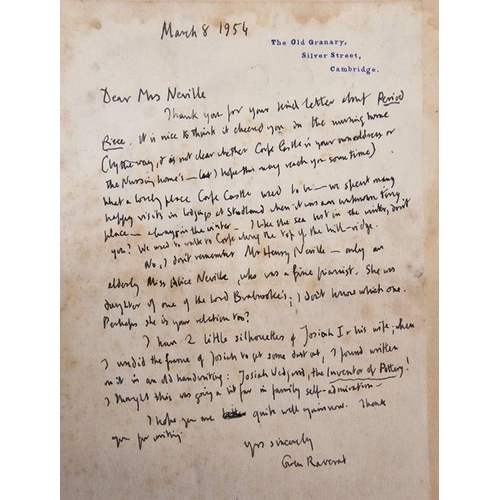 March 8 1954
The Old Granary,
Silver Street,
Cambridge.
Dear Mrs Neville
Thank you for your kind letter about Period
Piece. It is nice to think it cheered you in the nursing home
(By the way, it is not clear whether Corfe Castle is your own address or
the Nursing home's — but I hope this may reach you some time)
What a lovely place Corfe Castle used to be — we spent many
happy visits in lodgings at Studland when it was an unknown tiny
place — always in the winter. I like the sea best in the winter, don't
you? We used to walk to Corfe along the top of the hill-ridge.
No, I don't remember Mr Henry Neville — only an
elderly Miss Alice Neville, who was a fine pianist. She was
daughter of one of the Lord Braybrooke's; I don't know which one.
Perhaps she is your relation too?
I have 2 little silhouettes of Josiah I & his wife; when
I undid the frame of Josiah to get some dust out, I found written
on it in an old handwriting: Josiah Wedgwood, the Inventor of Pottery!
I thought this was going a bit far in family self-admiration —
I hope you are quite well again now. Thank
you for writing
yrs sincerely
Gwen Raverat